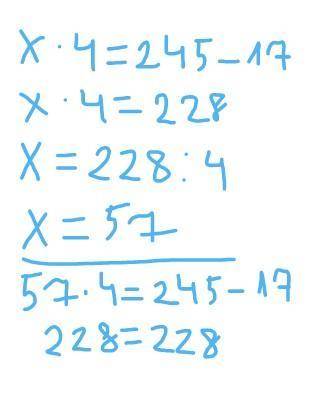 x · 4 = 245 - 17
x · 4 = 228
x = 228 : 4
x = 57
57 · 4 = 245 - 17
228 = 228